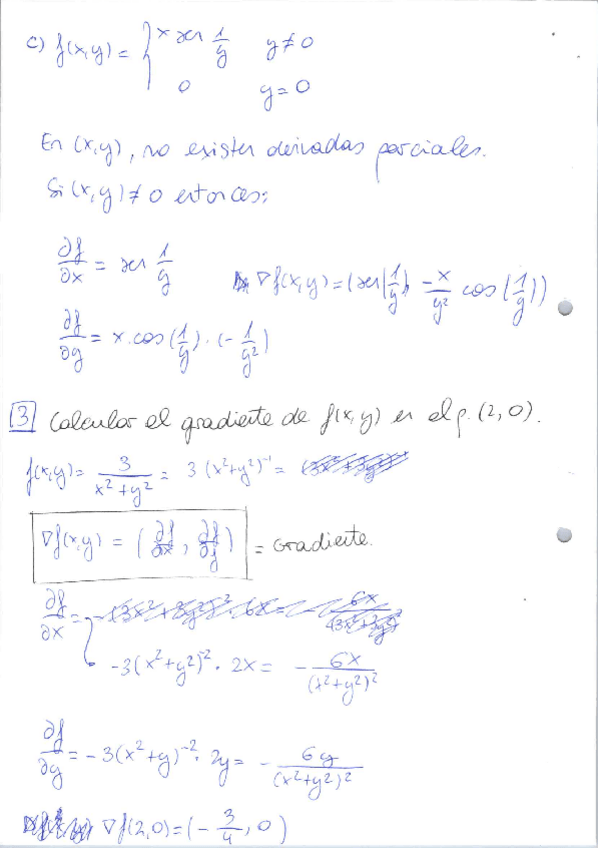 c) f(x,y) = { x sen 1/y   y ≠ 0
0   y = 0
En (x,y), no existen derivadas parciales.
Si (x,y) ≠ 0 entonces:
∂f/∂x = sen 1/y
∇f(x,y) = (sen(1/y), -x/y² cos(1/y))
∂f/∂y = x·cos(1/y)·(-1/y²)
3 Calcular el gradiente de f(x,y) en el p. (2,0).
f(x,y) = 3/(x²+y²) = 3(x²+y²)⁻¹ =
∇f(x,y) = (∂f/∂x, ∂f/∂y) = Gradiente.
∂f/∂x =
-3(x²+y²)⁻² · 2x = - 6x/(x²+y²)²
∂f/∂y = -3(x²+y)⁻² · 2y = - 6y/(x²+y²)²
∇f(2,0) = (-3/4, 0)